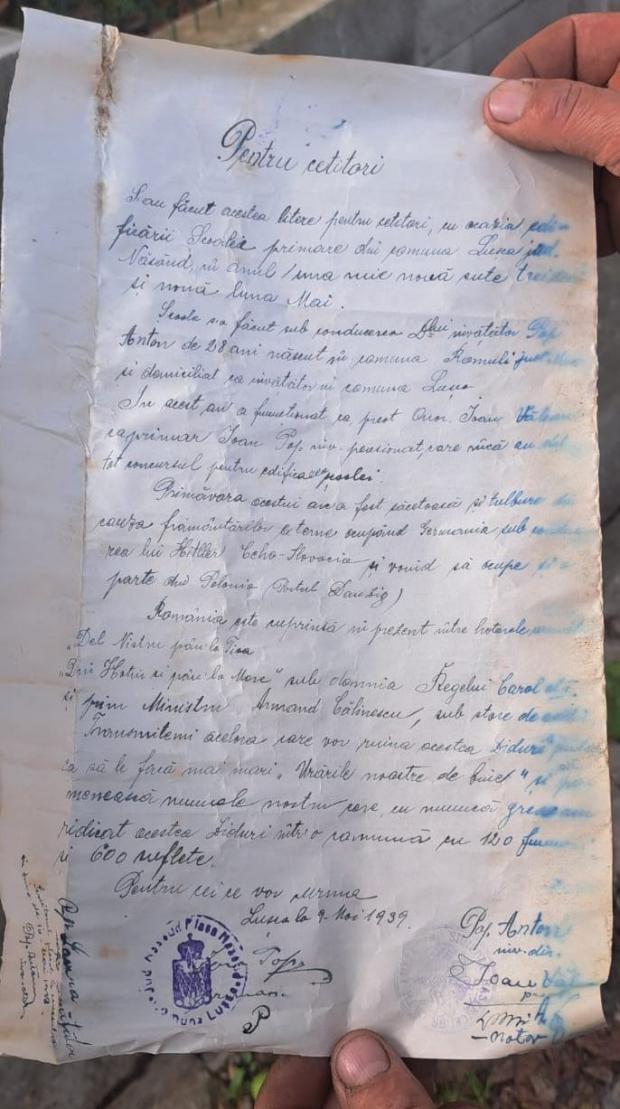 Pentru cetitori
S'au făcut acestea litere pentru cetitori, cu ocazia edi-
ficării Școalei primare din comuna Lușca jud.
Năsăud, în anul una mie nouă sute trei
și nouă luna Mai.
Școala s'a făcut sub conducerea Dlui învățător Pop
Anton de 28 ani născut în comuna Romuli jud.
și domiciliat ca învățător în comuna Lușca
In acest an a funcționat ca preot Onor. Ioan
caprimar Ioan Pop înv. pensionat, care
tot concursul pentru edificarea școalei.
Primăvara acestui an a fost săcetoasă și tulbure din
cauza frământărilor externe ocupând Germania sub conduce
rea lui Hittler Ceho-Slovacia și voind să ocupe și o
parte din Polonia (Portul Danzig)
România este cuprinsă în prezent între hotarele
„Del Nistru pân' la Tisa
Din Hotin și pân' la Mare" sub domnia Regelui Carol al II
și prim Ministru Armand Călinescu, sub stare de
Transmitem acelora care vor ruina acestea Ziduri
ca să le facă mai mari „Urările noastre de bine" și
menească numele nostru care, cu muncă grea am
ridicat acestea Ziduri într'o comună cu 120
și 600 suflete.
Pentru cei ce vor urma
Lușca la 9 Mai 1939.
Pop Anton
înv. dir.
Ioan
Pop
notar